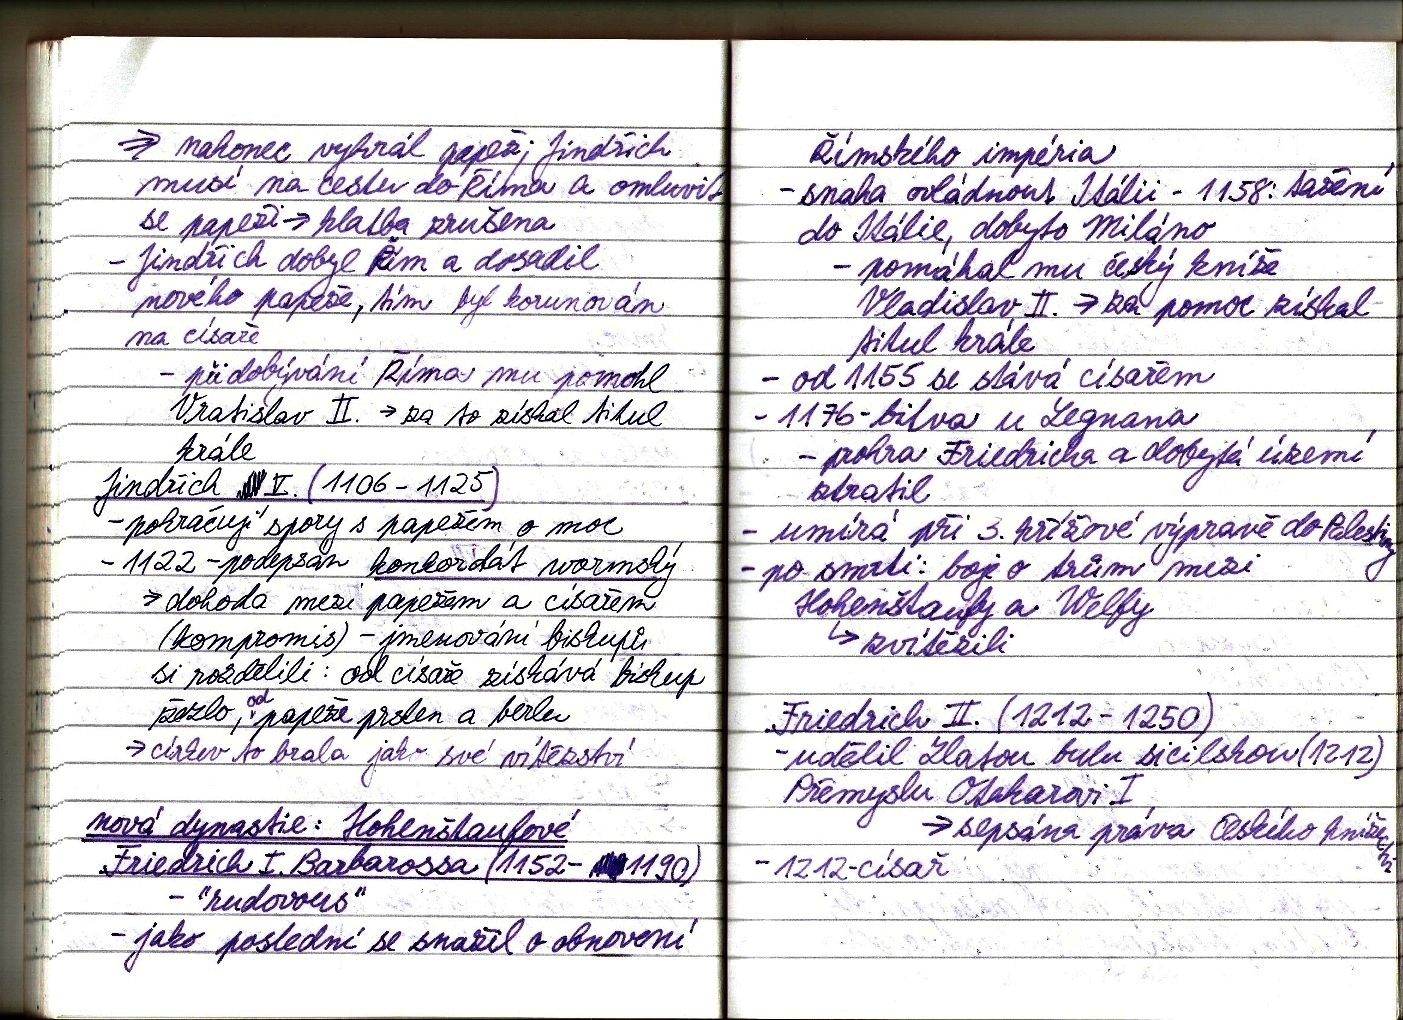 ⇒ nakonec vyhrál papež; Jindřich
musí na cestu do Říma a omluvit
se papeži → klatba zrušena
- Jindřich dobyl Řím a dosadil
nového papeže, tím byl korunován
na císaře
- při dobývání Říma mu pomohl
Vratislav II. → za to získal titul
krále
Jindřich V. (1106 - 1125)
- pokračují spory s papežem o moc
- 1122 - podepsán konkordát wormský
→ dohoda mezi papežem a císařem
(kompromis) - jmenování biskupů
si rozdělili: od císaře získává biskup
žezlo, od papeže prsten a berlu
→ církev to brala jako své vítězství
nová dynastie: Hohenštaufové
Friedrich I. Barbarossa (1152 - 1190)
- "rudovous"
- jako poslední se snažil o obnovení
Římského impéria
- snaha ovládnout Itálii - 1158: tažení
do Itálie, dobyto Miláno
- pomáhal mu český kníže
Vladislav II. → za pomoc získal
titul krále
- od 1155 se stává císařem
- 1176 - bitva u Legnana
- prohra Friedricha a dobytá území
ztratil
- umírá při 3. křížové výpravě do Palestiny
- po smrti: boje o trůn mezi
Hohenštaufy a Welfy
↳ zvítězili
Friedrich II. (1212 - 1250)
- udělil Zlatou bulu sicilskou (1212)
Přemyslu Otakarovi I
→ sepsána práva českého knížectví
- 1212 - císař